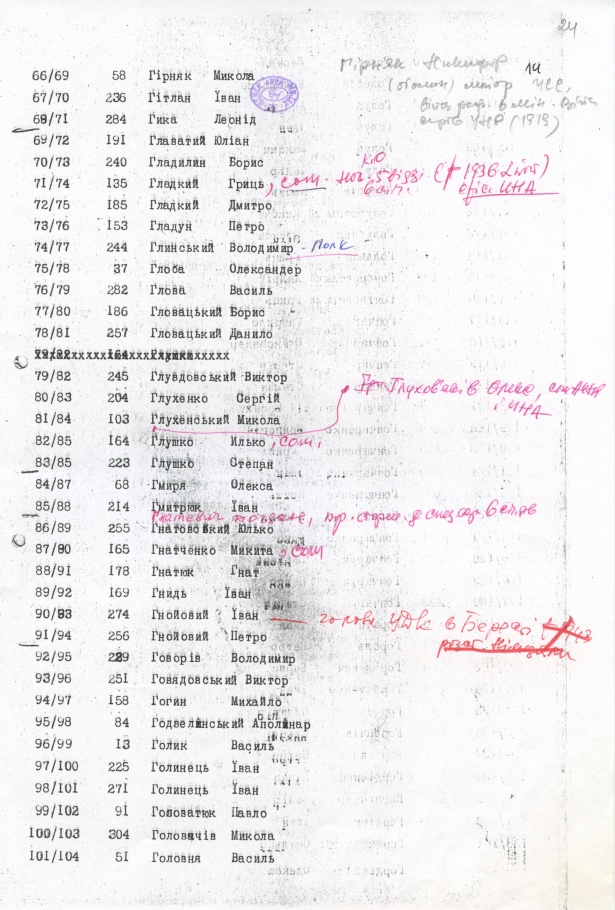 24
Гірняк Никифор
14
(отаман) УСС,
УНР (1919)
66/69 58 Гірняк Микола
67/70 236 Гітлан Іван
68/71 284 Гика Леонід
69/72 191 Главатий Юліан
70/73 240 Гладилин Борис
71/74 135 Гладкий Гриць, сот. (+ 1936 Львів)
офіц УНА
72/75 185 Гладкий Дмитро
73/76 153 Гладун Петро
74/77 244 Глинський Володимир - Полк
75/78 37 Глоба Олександер
76/79 282 Глова Василь
77/80 186 Гловацький Борис
78/81 257 Гловацький Данило
79/82 164 Глушко
79/82 245 Глувдовський Виктор
80/83 204 Глухенко Сергій
81/84 103 Глухенський Микола
і УНА
82/85 164 Глушко Илько, сот.
83/85 223 Глушко Степан
84/87 68 Гмиря Олекса
85/88 214 Гмитрюк Іван
86/89 255 Гнатовський Юлько
87/90 165 Гнатченко Микита, сот
88/91 178 Гнатюк Гнат
89/92 169 Гнидь Іван
90/93 274 Гнойовий Іван — голова УДК в
91/94 256 Гнойовий Петро
92/95 229 Говорів Володимир
93/96 251 Говядовський Виктор
94/97 158 Гогин Михайло
95/98 84 Годвелінський Аполінар
96/99 13 Голик Василь
97/100 225 Голинець Іван
98/101 271 Голинець Іван
99/102 91 Головатюк Павло
100/103 304 Головачів Микола
101/104 51 Головня Василь